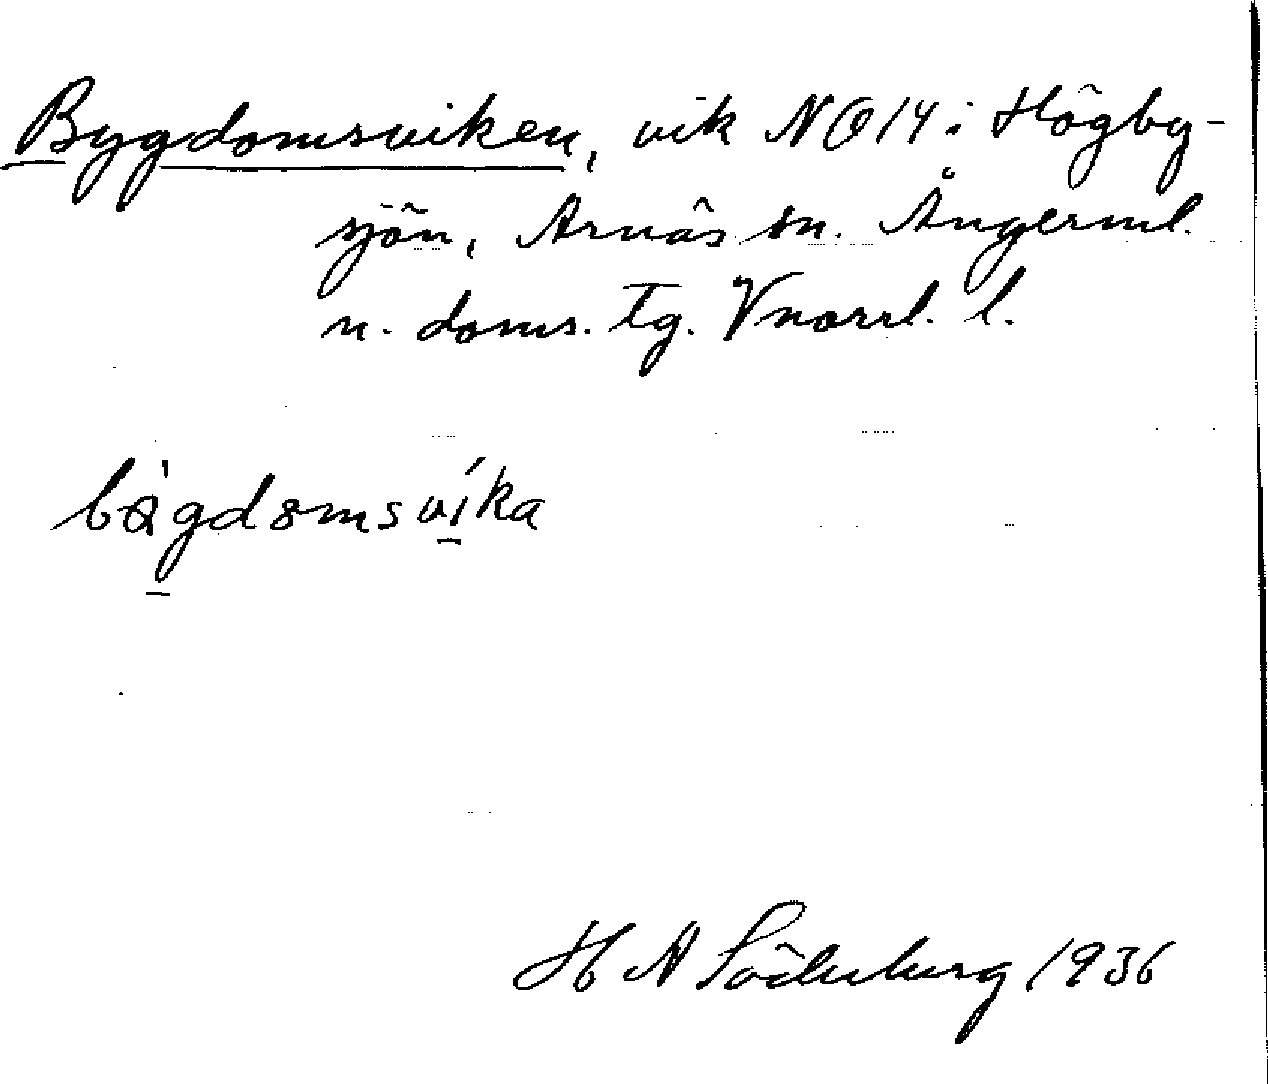 Bygdomsviken, vik NO 14 i Högby-
sjön, Arnäs sn. Ångerml.
n. doms. tg. Vnorrl. l.
H A Söderberg 1936